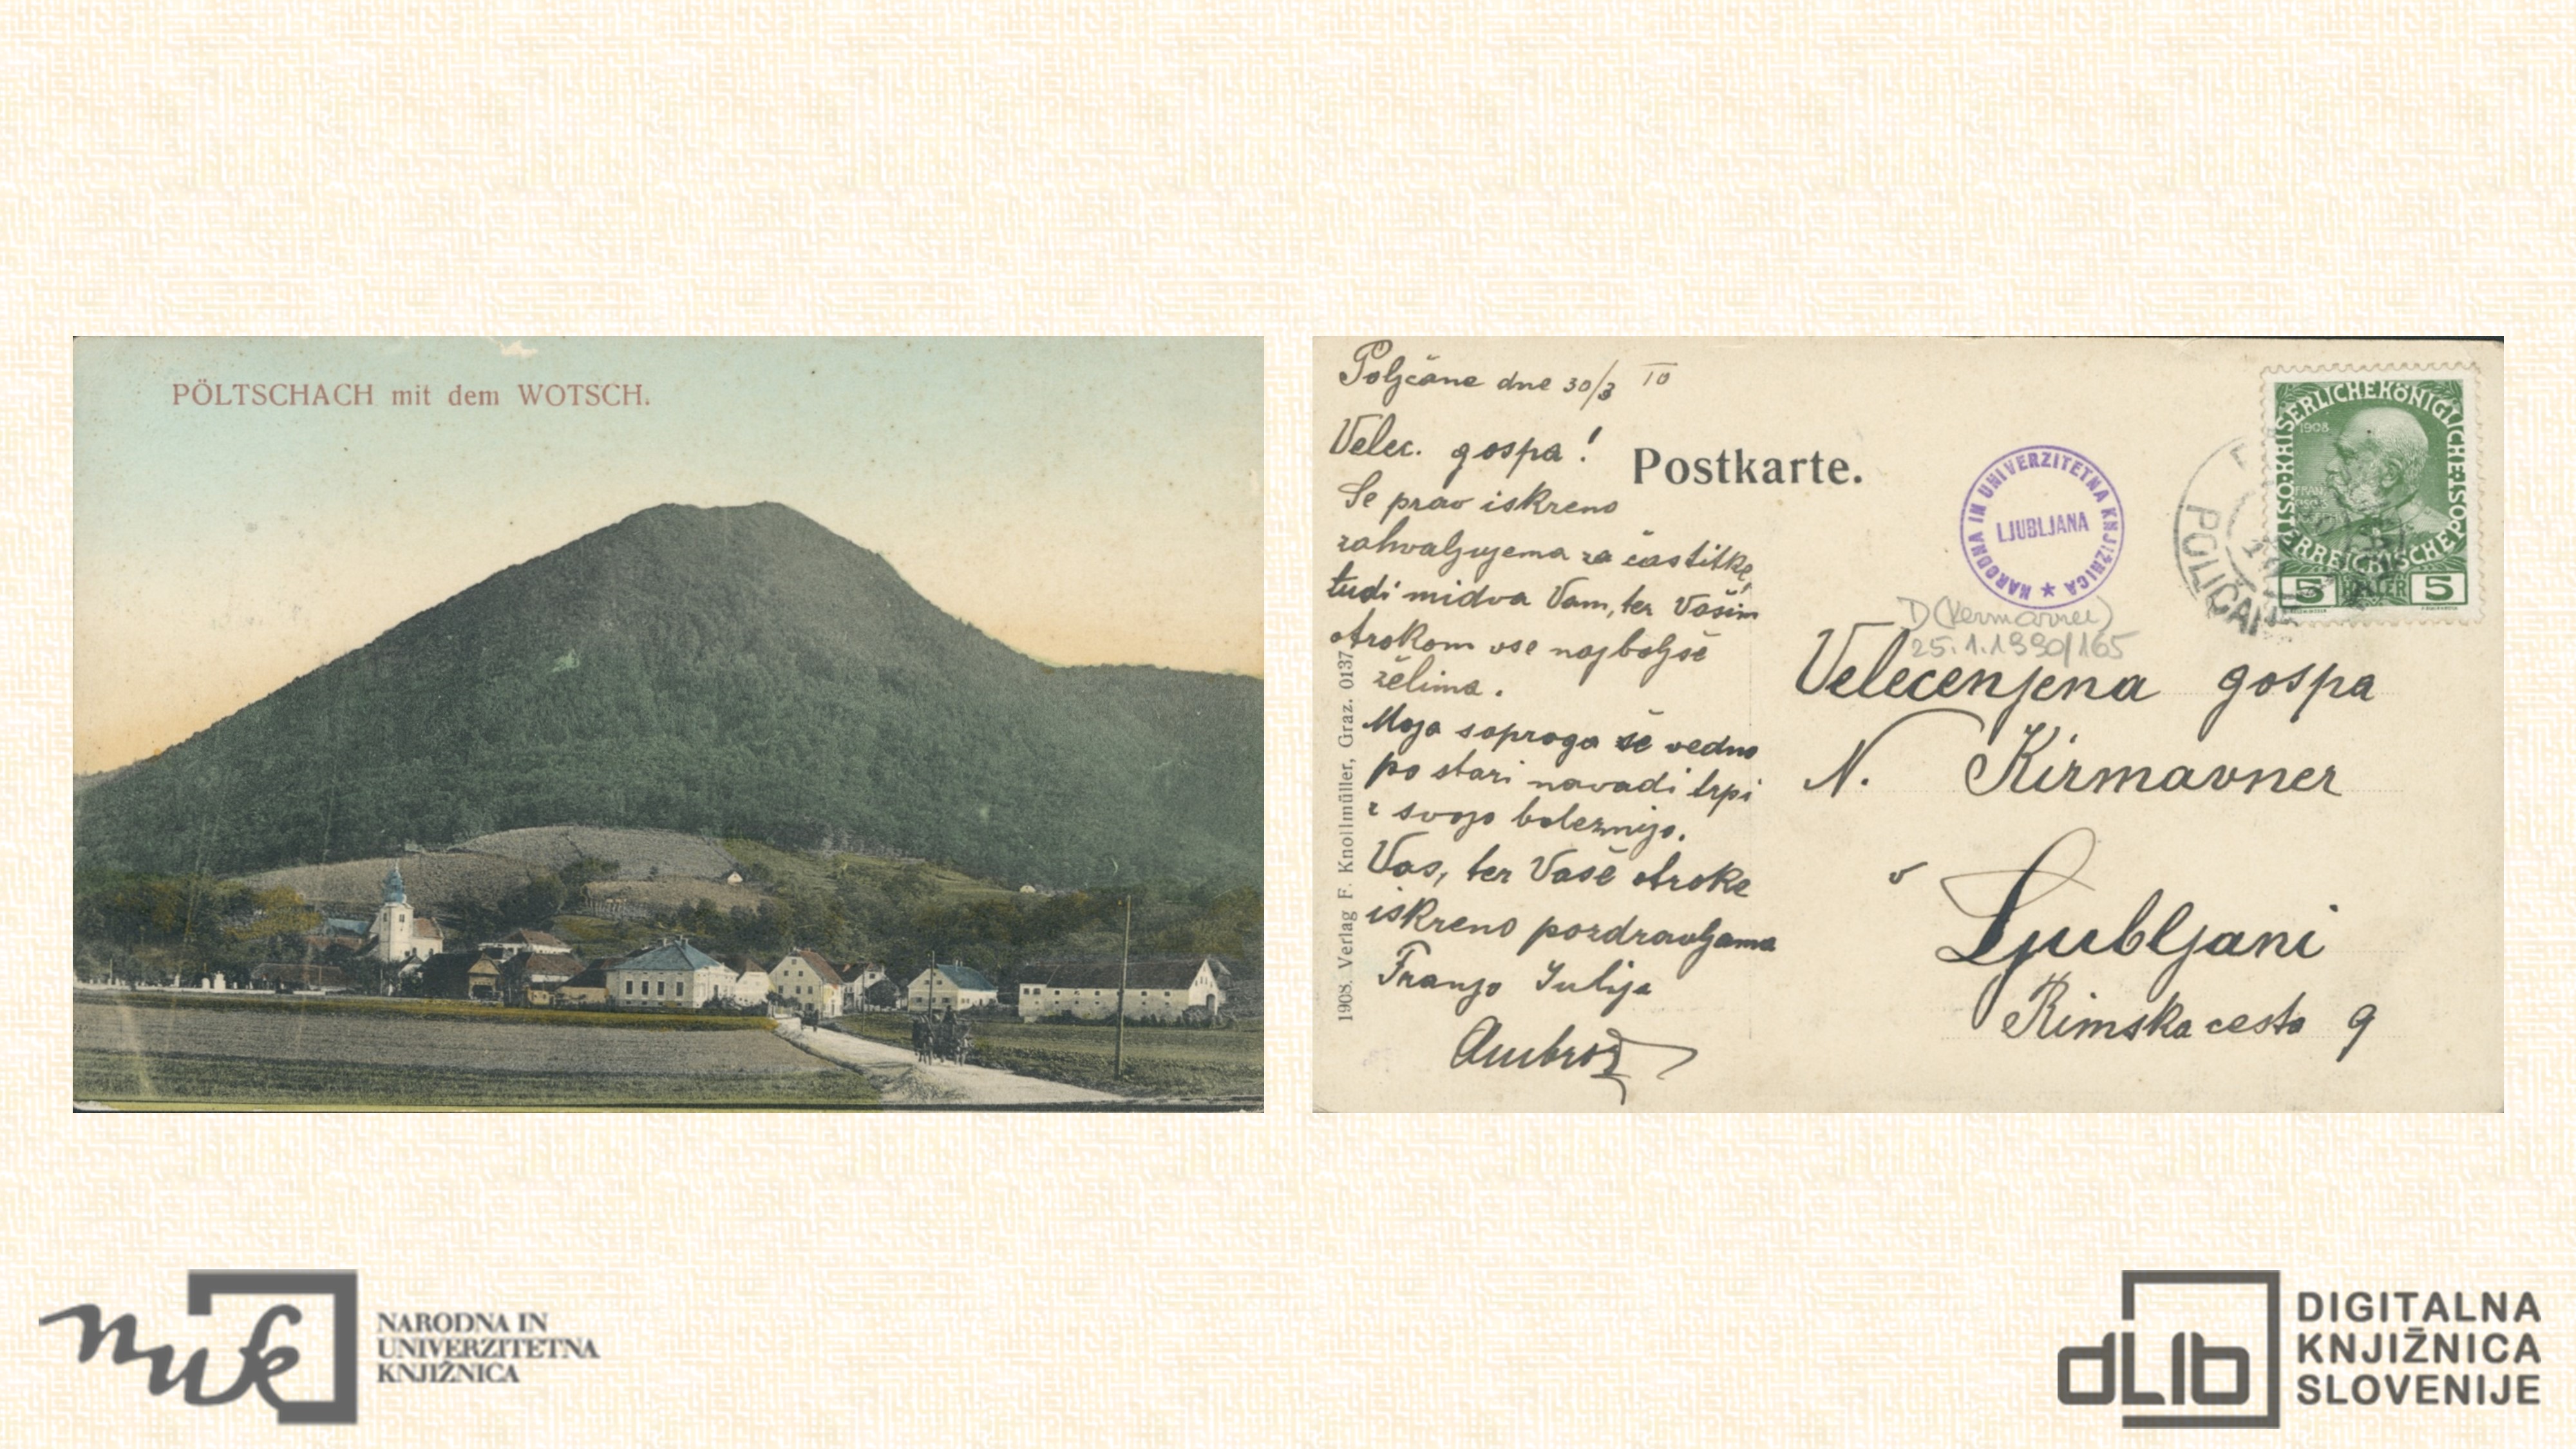 PÖLTSCHACH mit dem WOTSCH.
Poljčane dne 30/3 10
Velec. gospa!
Se prav iskreno
zahvaljujema za častitke,
tudi midva Vam, ter Vašim
otrokom vse najboljše
želima.
Moja soproga še vedno
po stari navadi trpi
z svojo boleznijo.
Vas, ter Vaše otroke
iskreno pozdravljama
Franjo Julija
Ambrož
1908. Verlag F. Knollmüller, Graz. 0137
Postkarte.
NARODNA IN UNIVERZITETNA KNJIŽNICA ★
LJUBLJANA
POLIČAN
KAISERLICHE KÖNIGLICHE ÖSTERREICHISCHE POST
1908
5 HELLER 5
D (Kermavner)
25.1.1990/165
Velecenjena gospa
N. Kirmavner
v
Ljubljani
Rimska cesta 9
nuk
NARODNA IN
UNIVERZITETNA
KNJIŽNICA
dLib
DIGITALNA
KNJIŽNICA
SLOVENIJE